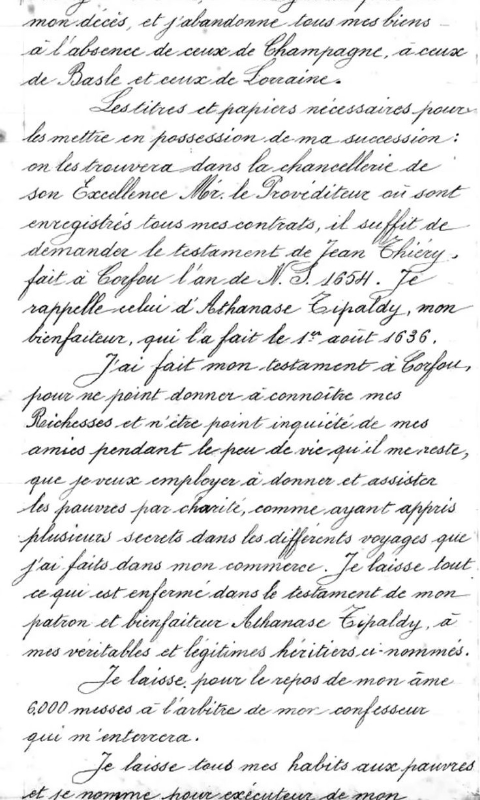 mon décès, et j'abandonne tous mes biens
à l'absence de ceux de Champagne, à ceux
de Basle et ceux de Lorraine.
Les titres et papiers nécessaires pour
les mettre en possession de ma succession :
on les trouvera dans la chancellerie de
son Excellence Mr. le Provéditeur où sont
enregistrés tous mes contrats, il suffit de
demander le testament de Jean Thiéry,
fait à Corfou l'an de N. S. 1654. Je
rappelle celui d'Athanase Tipaldy, mon
bienfaiteur, qui l'a fait le 1er août 1636.
J'ai fait mon testament à Corfou,
pour ne point donner à connoître mes
Richesses et n'être point inquiété de mes
amies pendant le peu de vie qu'il me reste,
que je veux employer à donner et assister
les pauvres par charité, comme ayant appris
plusieurs secrets dans les différents voyages que
j'ai faits dans mon commerce. Je laisse tout
ce qui est enfermé dans le testament de mon
patron et bienfaiteur Athanase Tipaldy, à
mes véritables et légitimes héritiers ci-nommés.
Je laisse, pour le repos de mon âme
6,000 messes à l'arbitre de mon confesseur
qui m'enterrera.
Je laisse tous mes habits aux pauvres
et je nomme pour exécuteur de mon